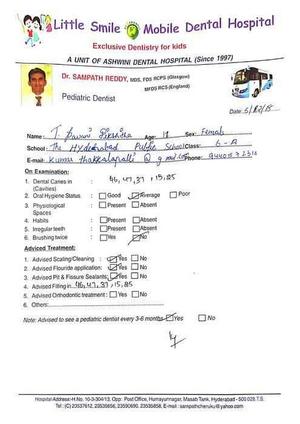 Little Smile Mobile Dental Hospital
Exclusive Dentistry for kids
A UNIT OF ASHWINI DENTAL HOSPITAL (Since 1997)
Dr. SAMPATH REDDY, MDS, FDS RCPS (Glasgow)
MFDS RCS (England)
Pediatric Dentist
Date:
Name: T Pavani Age: 11 Sex: Female
School: The Hyderabad Public School Class: 6-A
E-mail: kumar thakkalapalli @ gmail.co Phone:
On Examination:
1. Dental Caries in 46, 47, 37, 15, 25
(Cavities)
2. Oral Hygiene Status Good Average Poor
3. Physiological Present Absent
Spaces
4. Habits Present Absent
5. Irregular teeth Present Absent
6. Brushing twice Yes No
Adviced Treatment:
1. Advised Scaling/Cleaning : Yes No
2. Advised Fluoride application: Yes No
3. Advised Pit & Fissure Sealants: Yes No
4. Advised Filling in 46, 47, 37, 15, 25
5. Advised Orthodontic treatment : Yes No
6. Others:
Note: Advised to see a pediatric dentist every 3-6 months Yes No
Hospital Address: H.No. 10-3-304/13, Opp: Post Office, Humayunnagar, Masab Tank, Hyderabad - 500 028 T.S.
Tel: (C) 23537612, 23536656, 23590690, 23535858. E mail : sampathcheruku@yahoo.com